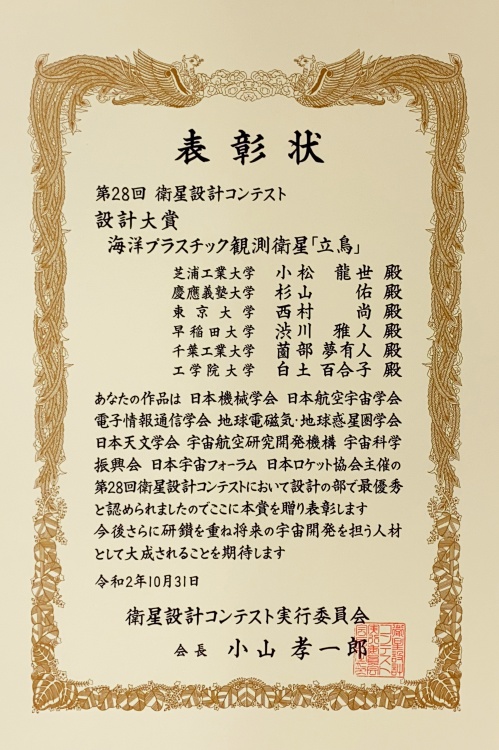 表彰状
第28回 衛星設計コンテスト
設計大賞
海洋プラスチック観測衛星「立鳥」
芝浦工業大学 小松 龍世 殿
慶應義塾大学 杉山 佑 殿
東京大学 西村 尚 殿
早稲田大学 渋川 雅人 殿
千葉工業大学 薗部 夢有人 殿
工学院大学 白土 百合子 殿
あなたの作品は 日本機械学会 日本航空宇宙学会
電子情報通信学会 地球電磁気・地球惑星圏学会
日本天文学会 宇宙航空研究開発機構 宇宙科学
振興会 日本宇宙フォーラム 日本ロケット協会主催の
第28回衛星設計コンテストにおいて設計の部で最優秀
と認められましたのでここに本賞を贈り表彰します
今後さらに研鑽を重ね将来の宇宙開発を担う人材
として大成されることを期待します
令和2年10月31日
衛星設計コンテスト実行委員会
会長 小山 孝一郎